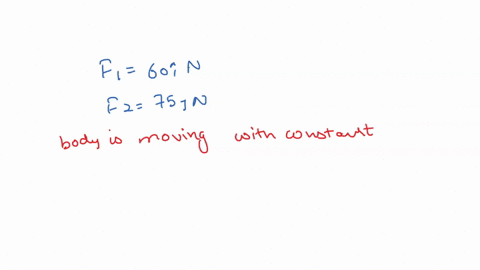 F1 = 60i N
F2 = 75j N
body is moving with constant